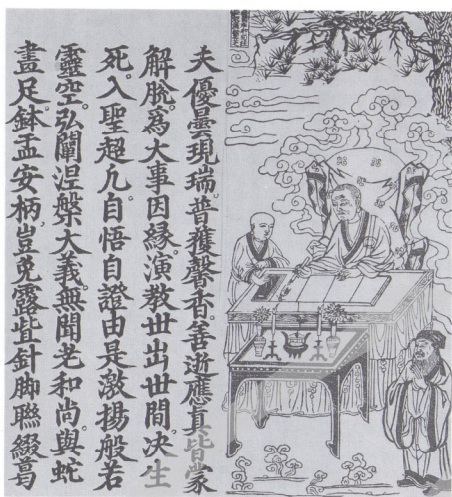 夫優曇現瑞。普獲馨香。善逝應真。皆蒙
解脫。爲大事因縁。演教世出世間。决生
死。入聖超凢。自悟自證由是激揚般若
靈空。弘闡涅槃大義。無聞老和尚與蛇
畫足。鉢盂安柄。豈免露呰針脚聯綴葛